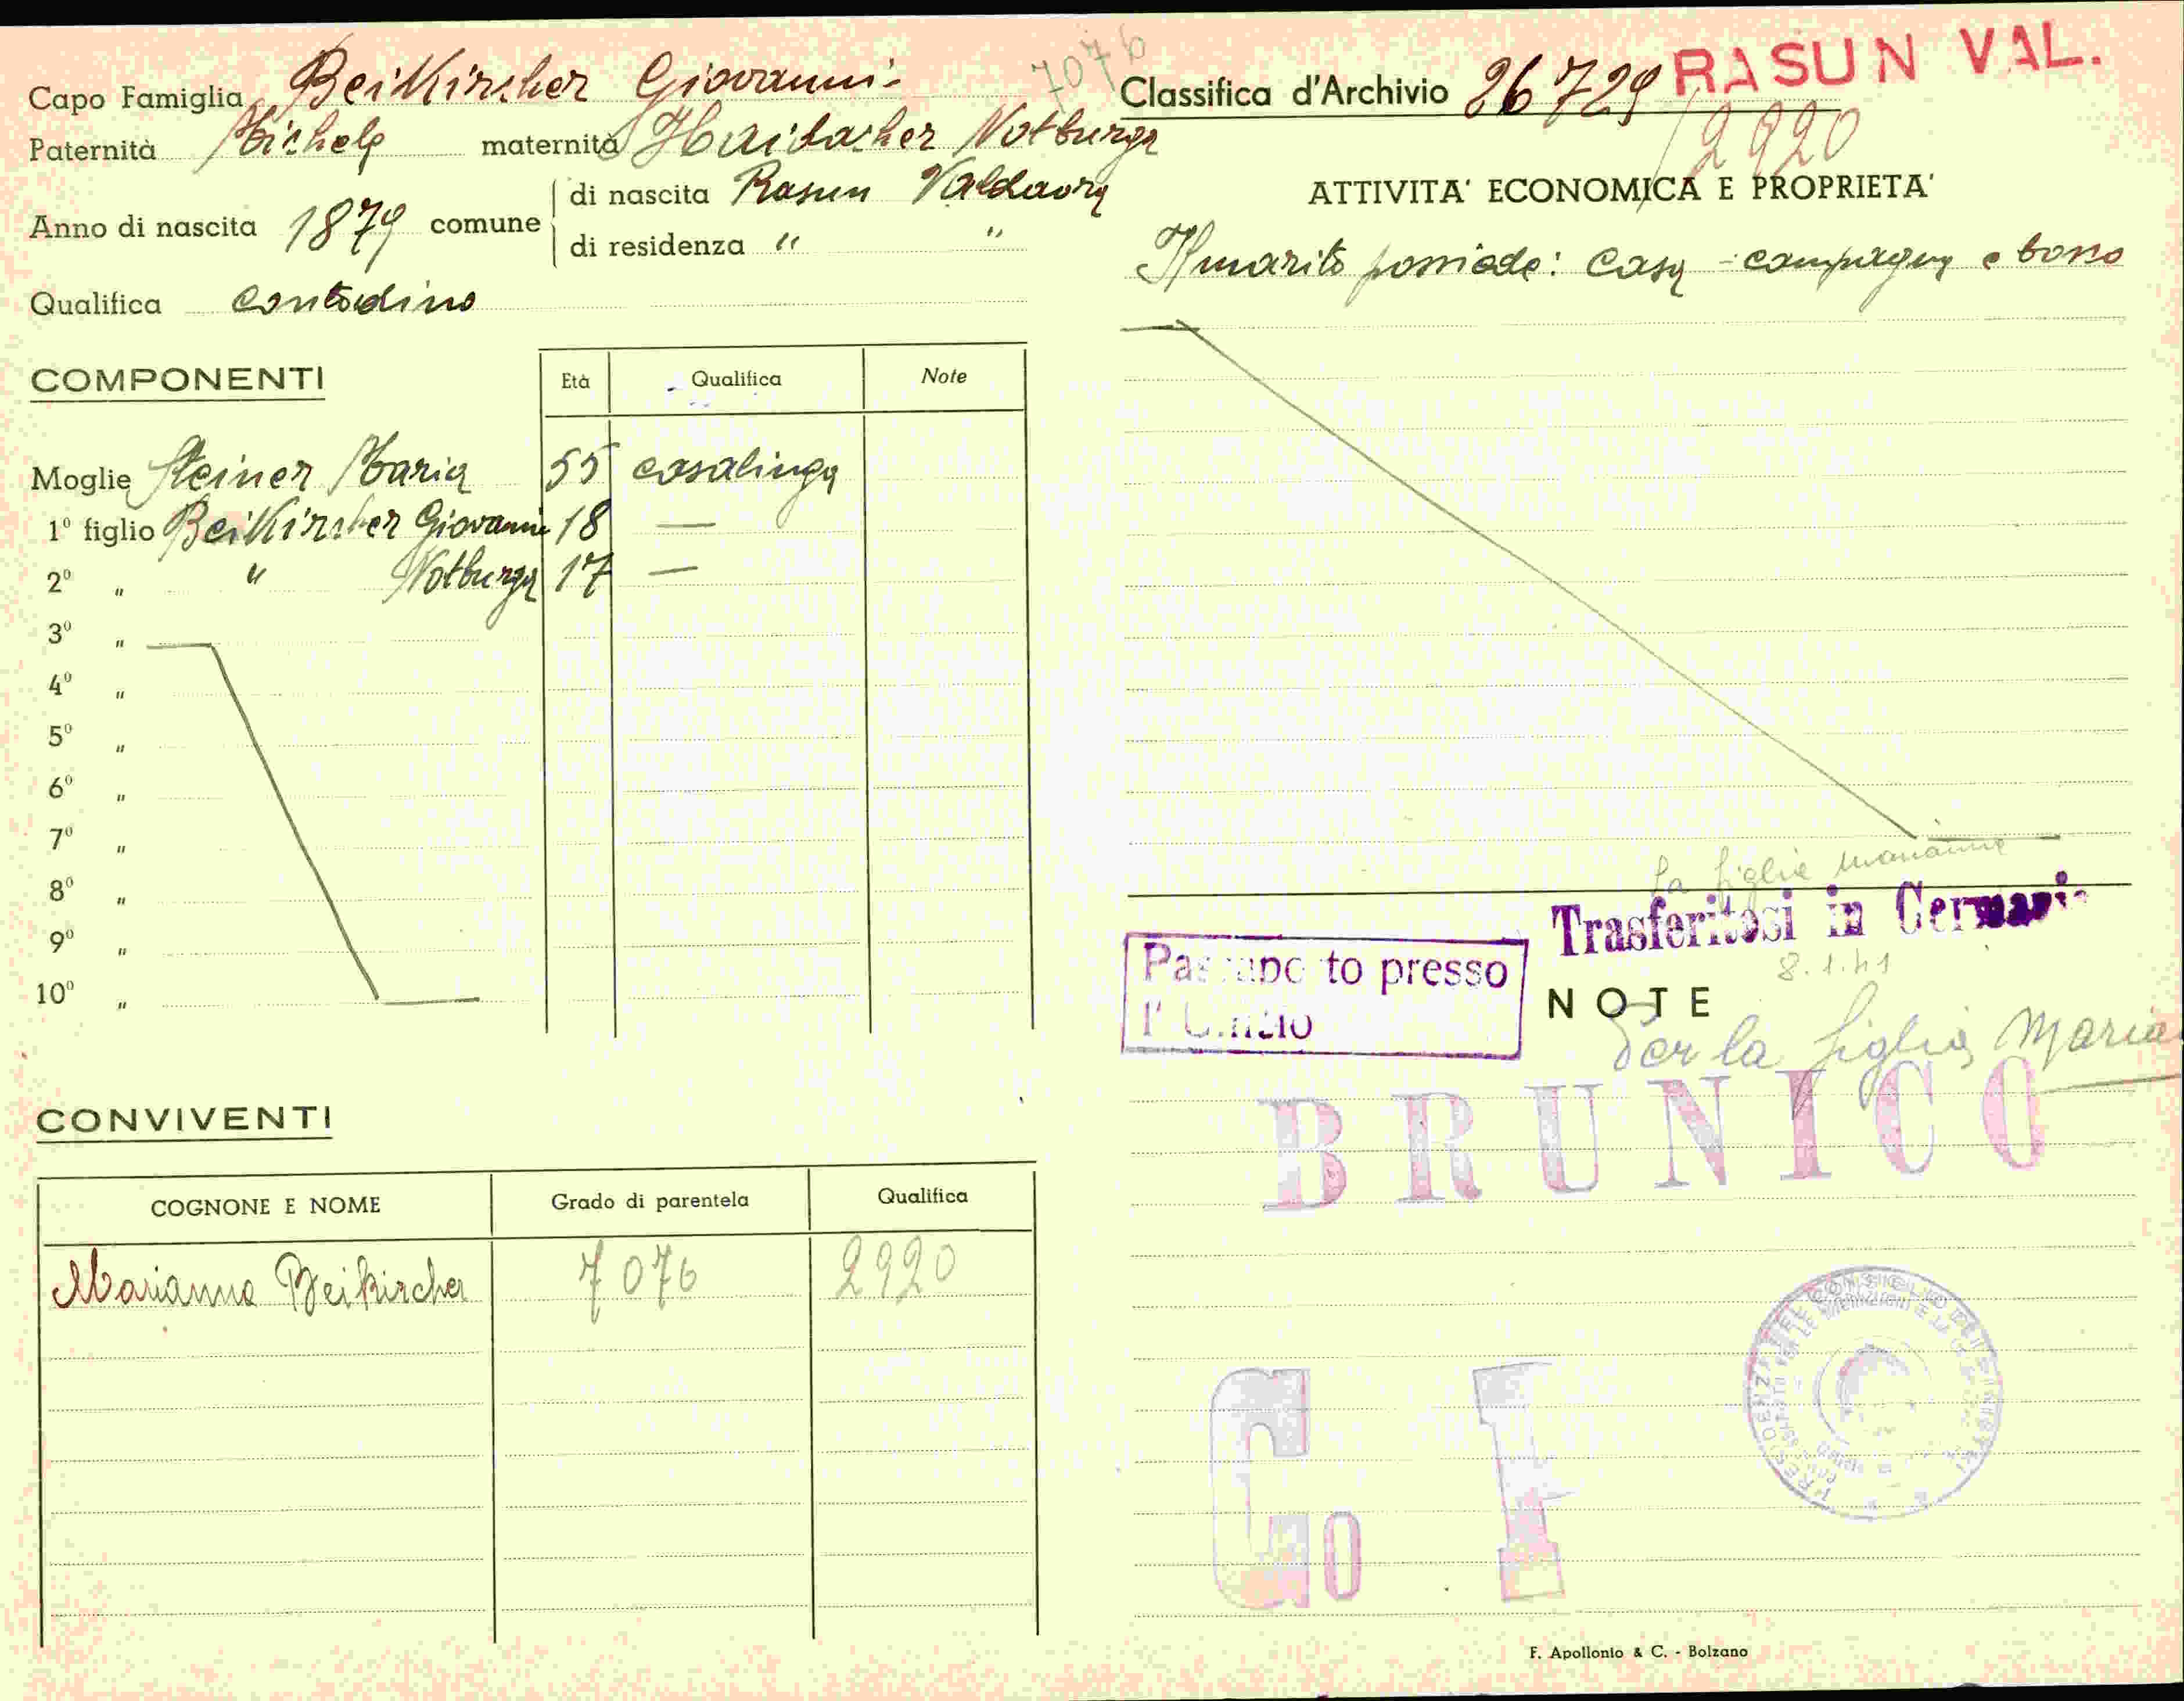 Capo Famiglia Beikircher Giovanni
7076
Paternità Michele maternità Haibacher Notburga
Anno di nascita 1879 comune di nascita Rasun Valdaora
di residenza " "
Qualifica contadino
COMPONENTI
Età Qualifica Note
Moglie Steiner Maria 55 casalinga
1º figlio Beikircher Giovanni 18 —
2º " " Notburga 17 —
3º "
4º "
5º "
6º "
7º "
8º "
9º "
10º "
CONVIVENTI
COGNONE E NOME Grado di parentela Qualifica
Marianna Beikircher 7076 2920
Classifica d'Archivio 26729 RASUN VAL.
2920
ATTIVITA' ECONOMICA E PROPRIETA'
Il marito possiede: casa - campagna e bosco
la figlia Marianna
Trasferitosi in Germania
8.1.41
Passaporto presso
l'Ufficio
NOTE
Per la figlia Maria
BRUNICO
Go I
F. Apollonio & C. - Bolzano